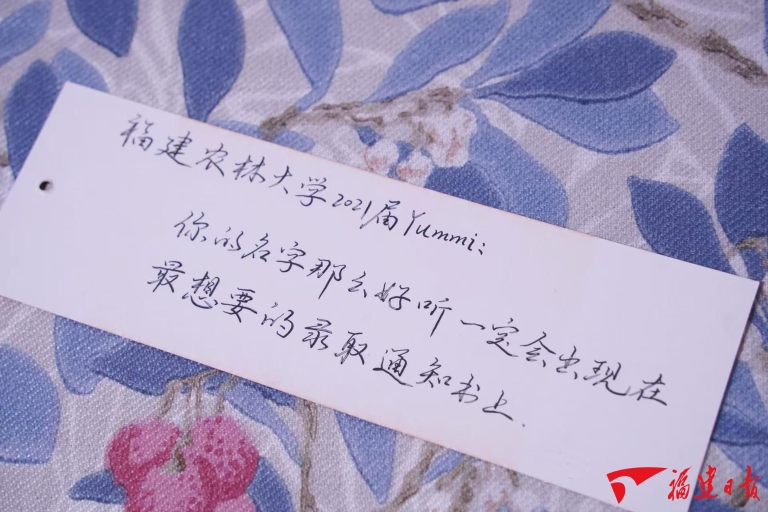 福建农林大学2021届Yummi:
你的名字那么好听一定会出现在
最想要的录取通知书上.
福建日报